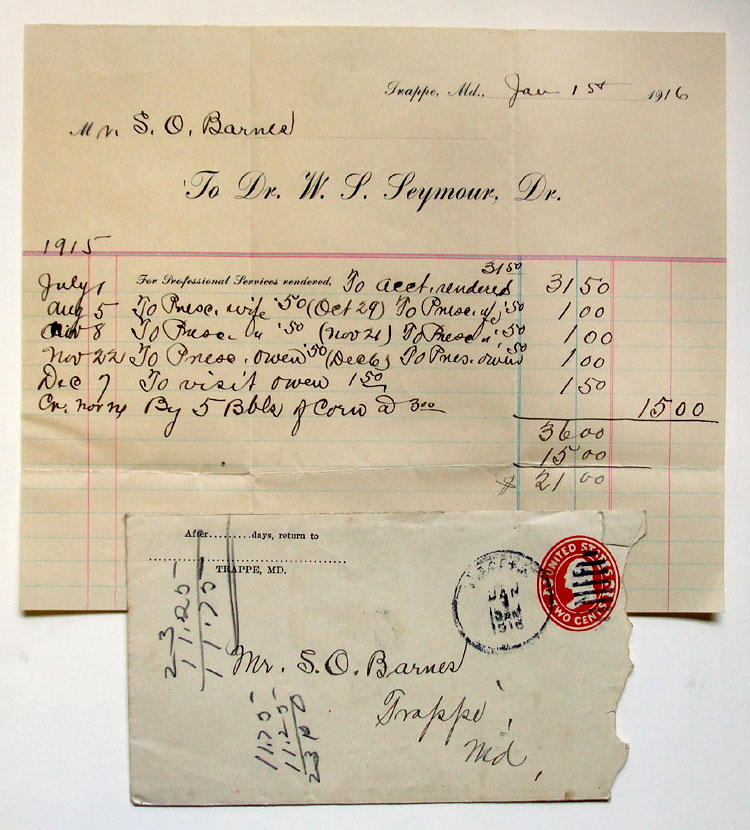 Trappe, Md., Jan 1st 1916
Mr. S. O. Barnes
To Dr. W. S. Seymour, Dr.
1915
July 1 For Professional Services rendered, To acct. rendered 31 50 31 50
Aug 5 To Presc. wife .50 (Oct 29) To Presc. wife .50 1 00
Nov 8 To Presc " .50 (Nov 21) To Presc " .50 1 00
Nov 22 To Presc. Owen .50 (Dec 6) To Pres. Owen .50 1 00
Dec 7 To visit Owen 1 50 1 50
Cr. Nov By 5 Bbls of Corn @ 3 00 15 00
36 00
15 00
$ 21 00
After.........days, return to
TRAPPE, MD.
UNITED STATES
TWO CENTS
JAN
1916
Mr. S. O. Barnes
Trappe,
Md,
11.25
11.75
23
11.75
11.25
23 00